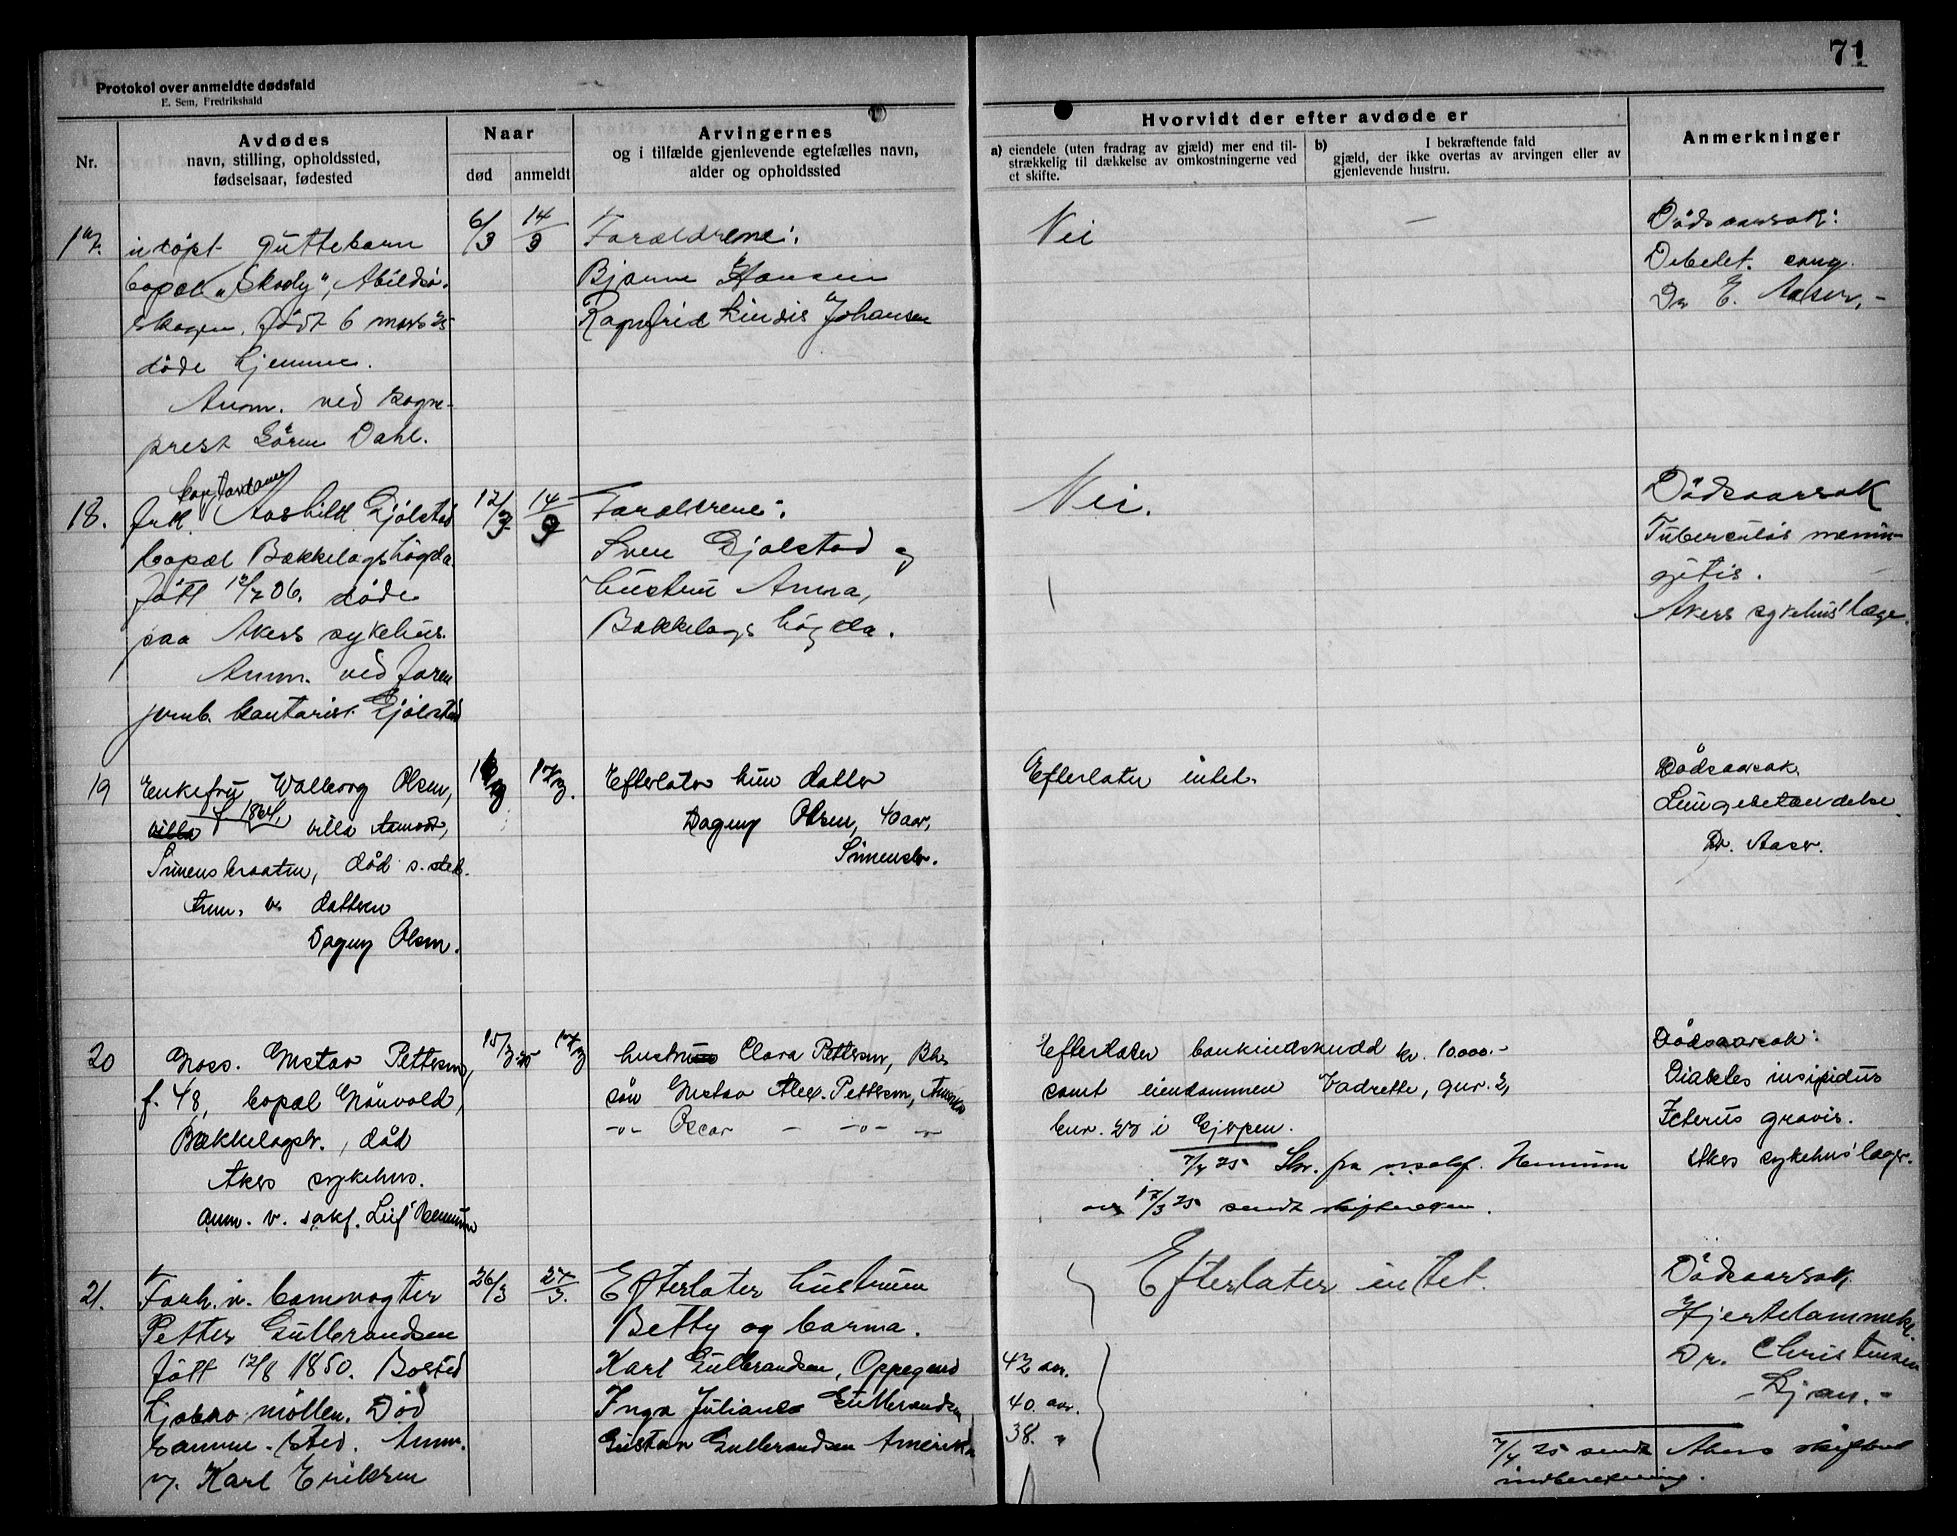 71
Protokol over anmeldte dødsfald
E. Sem, Fredrikshald
Nr.
Avdødes
navn, stilling, opholdssted,
fødselsaar, fødested
Naar
død
anmeldt
Arvingernes
og i tilfælde gjenlevende egtefælles navn,
alder og opholdssted
Hvorvidt der efter avdøde er
a) eiendele (uten fradrag av gjæld) mer end til-
strækkelig til dækkelse av omkostningerne ved
et skifte.
b) I bekræftende fald
gjæld, der ikke overtas av arvingen eller av
gjenlevende hustru.
Anmerkninger
17.
udøpt guttebarn
bopæl "Skody", Abildsø-
skogen, født 6 mars 25
døde hjemme.
Anm. ved Sogne-
prest Sören Dahl.
6/3
14/3
Forældrene:
Bjarne Hansen
Ragnfrid Lindis Johansen
Nei
—
Dödsaarsak:
Debilit. cong.
Dr E. Aaser,-
18.
frk. Aashild Gjölstad
bopæl Bækkelagshögda
født 12/7 06. døde
paa Akers sykehus.
Anm. ved faren
jernb. kontorist. Gjölstad
12/3
14/3
Forældrene:
Sven Gjölstad og
hustru Anna,
Bækkelagshögda.
Nei.
Dödsaarsak
Tuberkuløs menin-
gitis.
Akers sykehus' læge.
19
Enkefru Walborg Olsen,
f. 1864,
villa villa Aamodt,
Simensbraaten, død s. sted.
Anm. v. datteren
Dagny Olsen.
17/3.
Efterlater hun datter
Dagny Olsen, 40 aar,
Simensbr.
Efterlater intet.
Dödsaarsak.
Lungebetændelse
Dr. Aaser.
20
Gross. Gustav Pettersen,
f. 48, bopæl Grönvold,
Bækkelagsh., død
Akers sykehus.
Anm. v. sakf. Leif Hemnum
15/3 25
17/3
hustru Clara Pettersen, Bhs
sön Gustav Alex. Pettersen, Amerika
-"- Oscar - -"- -
Efterlater bankindskudd kr. 10000.-
samt eiendommen Vadrette, gnr. 2,
bnr. 27 i Gjerpen.
7/4 25 Skr. fra o.r.sakf. Hemnum
av 17/3 25 sendt skifteretten.
Dödsaarsak:
Diabetes insipidus
Icterus gravis.
Akers sykehus' læger.
21.
Forh. v. bomvogter
Petter Gulbrandsen
født 12/8 1850. Bosted
Ljabro möllen. Död
samme sted. Anm.
v. Karl Eriksen
26/3
27/3.
Efterlater hustruen
Betty og barna.
Karl Gulbrandsen, Oppegaard 42 aar.
Inga Juliane Gulbrandsen 40. aar.
Gustav Gulbrandsen Amerika 38. "
Efterlater intet.
Dödsaarsak
Hjertelammelse.
Dr. Christensen
Ljan.-
7/4 25 sendt Akers skifteret
indberetning.